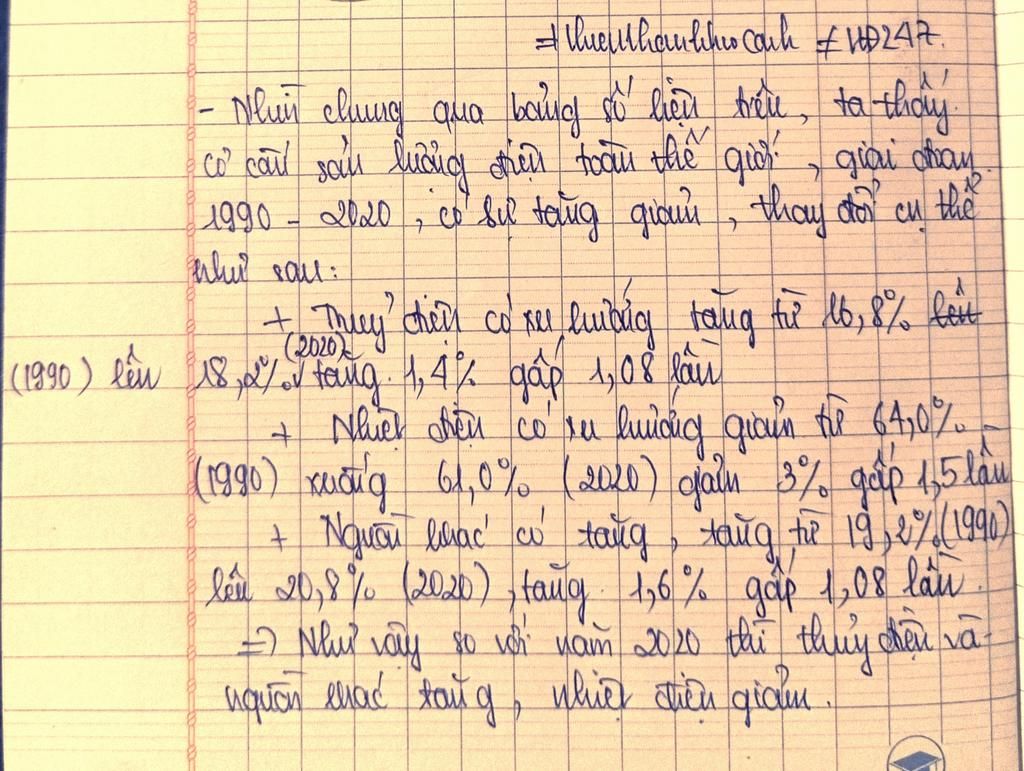 - Nhìn chung qua bảng số liệu trên, ta thấy
cơ cấu sản lượng điện toàn thế giới, giai đoạn
1990 - 2020, có sự tăng giảm, thay đổi cụ thể
như sau:
+ Thuỷ điện có xu hướng tăng từ 16,8% lên
(1990) lên 18,2% (2020) tăng 1,4% gấp 1,08 lần
+ Nhiệt điện có xu hướng giảm từ 64,0%
(1990) xuống 61,0% (2020) giảm 3% gấp 1,5 lần
+ Nguồn khác có tăng, tăng từ 19,2% (1990)
lên 20,8% (2020), tăng 1,6% gấp 1,08 lần.
=> Như vậy so với năm 2020 thì thuỷ điện và
nguồn khác tăng, nhiệt điện giảm.